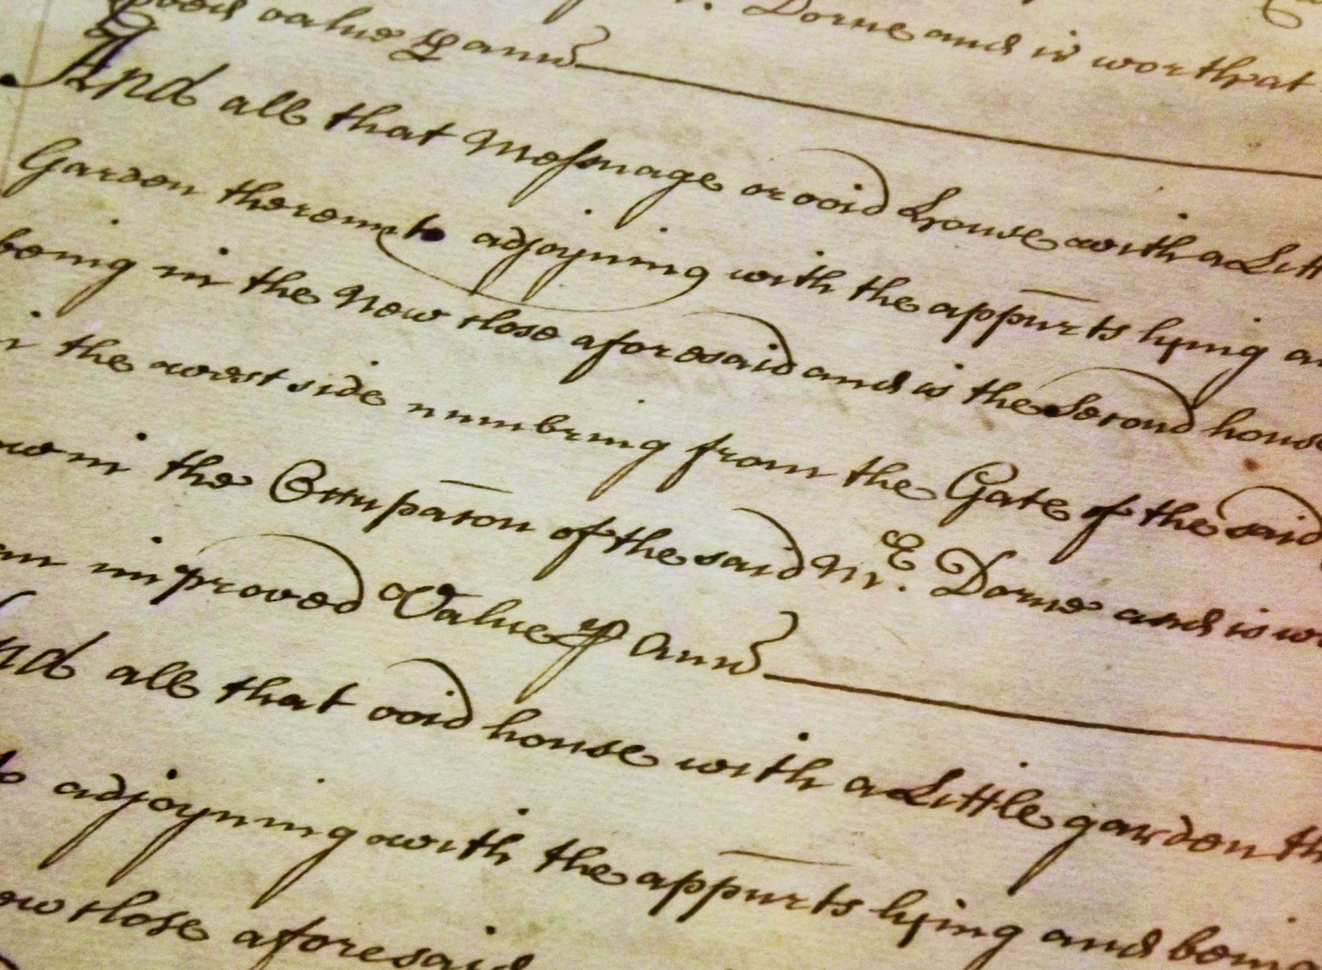 Dorne and is worth att
value p ann
And all that Messuage or void House with a Litt
Garden thereunto adjoyning with the appurts lying an
being in the New close aforesaid and is the Second house
the west side numbring from the Gate of the said
in the Occupacon of the said Mr E Dorne and is wo
improved Value p Ann
nd all that void house with a Little garden th
adjoyning with the appurts lying and being
ew close aforesaid